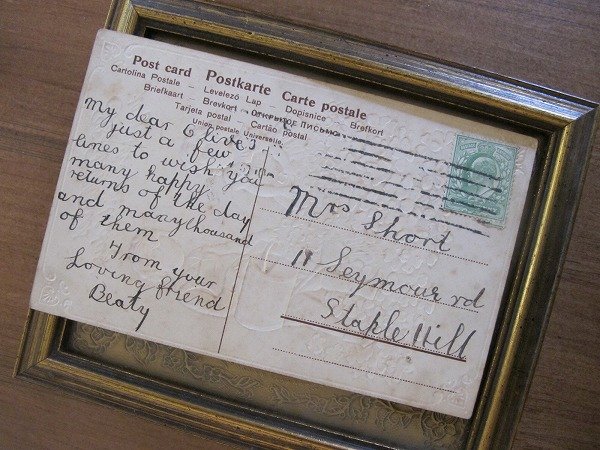 Post card Postkarte Carte postale
Cartolina Postale – Levelező Lap – Dopisnice – Brefkort
Briefkaart – Brevkort – ОТКРЫТОЕ ПИСЬМО
Tarjeta postal – Cartão postal
Union postale Universelle.
My dear Olive
just a few
lines to wish you
many happy
returns of the day
and many thousand
of them
From your
Loving friend
Beaty
Mrs Short
11 Seymour rd
Staple Hill